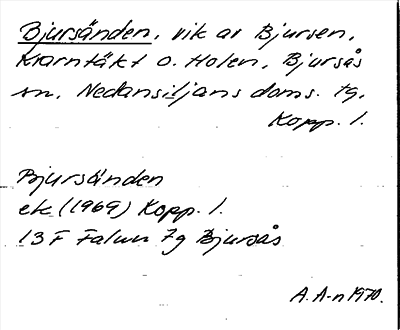 Bjursänden, vik av Bjursen,
Kvarntäkt o. Holen, Bjursås
sn, Nedansiljans doms. tg,
Kopp. l.
Bjursänden
ek (1969) Kopp. l.
13 F Falun 7g Bjursås
A. A-n 1970.